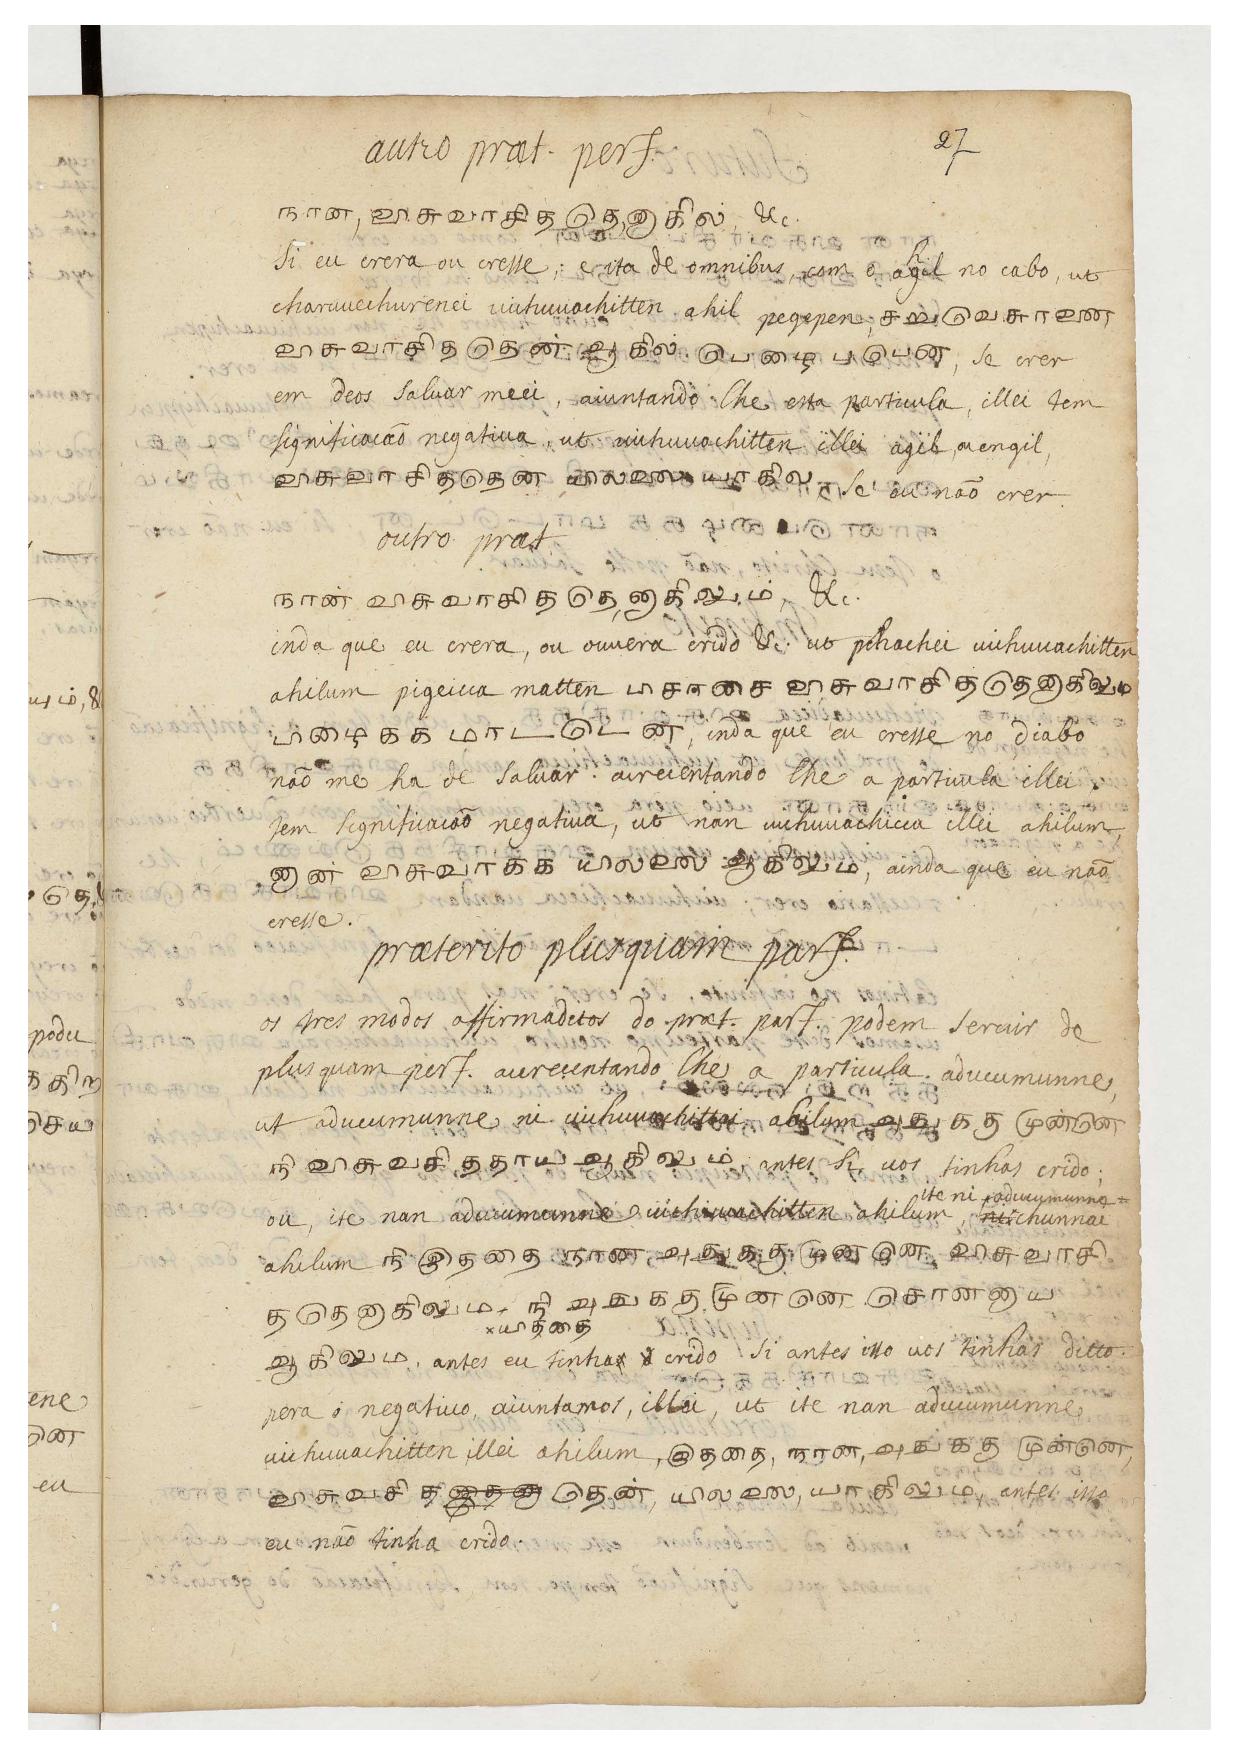 autro præt. perf.
27
நான, விசுவாசித தெனாகில, &c.
Si eu crera ou cresse; e ita de omnibus, com o ahil no cabo, ut
charuuechurenei uichuuachitten ahil pegepen, சருவெசுரனை
விசுவாசித தென் ஆகில் பெழைபபென, se crer
em deos saluar meei, aiuntando lhe esta particula, illei tem
significacaõ negatiua, ut uichuuachitten illei agil, uengil,
விசுவாசிததென யிலலை யாகில, se eu naõ crer
outro præt
நான் விசுவாசித தெனாகிலும், &c.
inda que eu crera, ou ouuera crido &c. ut pichachei uichuuachitten
ahilum pigeicca matten பசாசை விசுவாசிததெனாகிலும
பிழைகக மாடடென், inda que eu cresse no diabo
naõ me ha de saluar. acrecentando lhe a particula illei
tem significacaõ negatiua, ut nan uichuuachicca illei ahilum
னான் விசுவாக்க யிலலை ஆகிலும, ainda que eu naõ
cresse.
præterito plusquam parf.
os tres modos affirmaditos do præt. parf. podem seruir de
plusquam perf. acrecentando lhe a particula aducumunne,
ut aducumunne ni uichuuachittai ahilum அதுககு முன்னெ
நி விசுவசிததாய ஆகிலும் antes si uos tinhas crido;
ite ni aducumunne
ou, ite nan aducumunne uichuuachitten ahilum, chunnai
ahilum நி இததை நான, அதுககு முனனெ விசுவாசி
ததெனாகிலும. நி அதுககு முனனெ சொன்னாய
×யிததை
ஆகிலும. antes eu tinha crido si antes isto uos tinhas ditto.
pera o negatiuo, aiuntamos, illei, ut ite nan aducumunne
uichuuachitten illei ahilum, இததை, நான, அதுககு முன்னெ,
விசுவசித தென், யிலலை, யாகிலும, antes isso
eu naõ tinha crido.